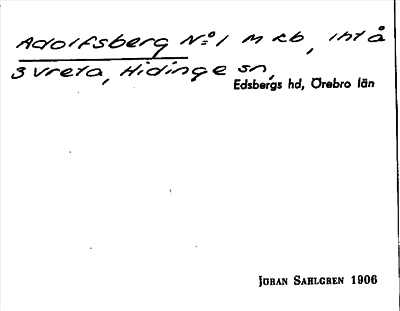 Adolfsberg No 1 m kb, int å
3 Vreta, Hidinge sn,
Edsbergs hd, Örebro län
JÖRAN SAHLGREN 1906